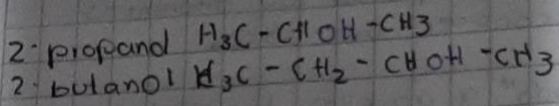 2-propanol H₃C-CHOH-CH3
2-butanol H₃C-CH₂-CHOH-CH3